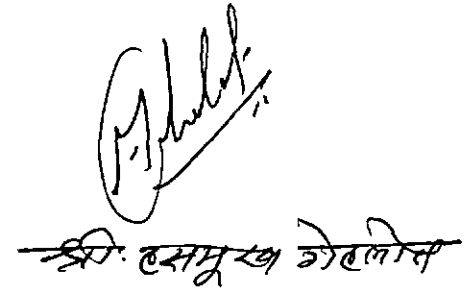 श्री. हसमूख गेहलोत